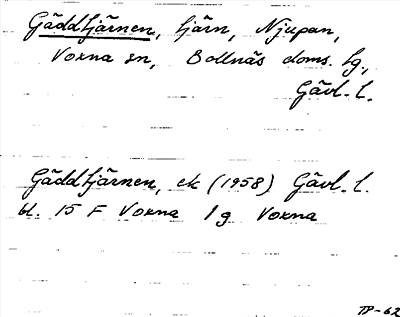 Gäddtjärnen, tjärn, Njupan,
Voxna sn, Bollnäs doms. tg.,
Gävl. l.
Gäddtjärnen, ek (1958) Gävl. l.
bl. 15 F Voxna 1 g Voxna
TP-62